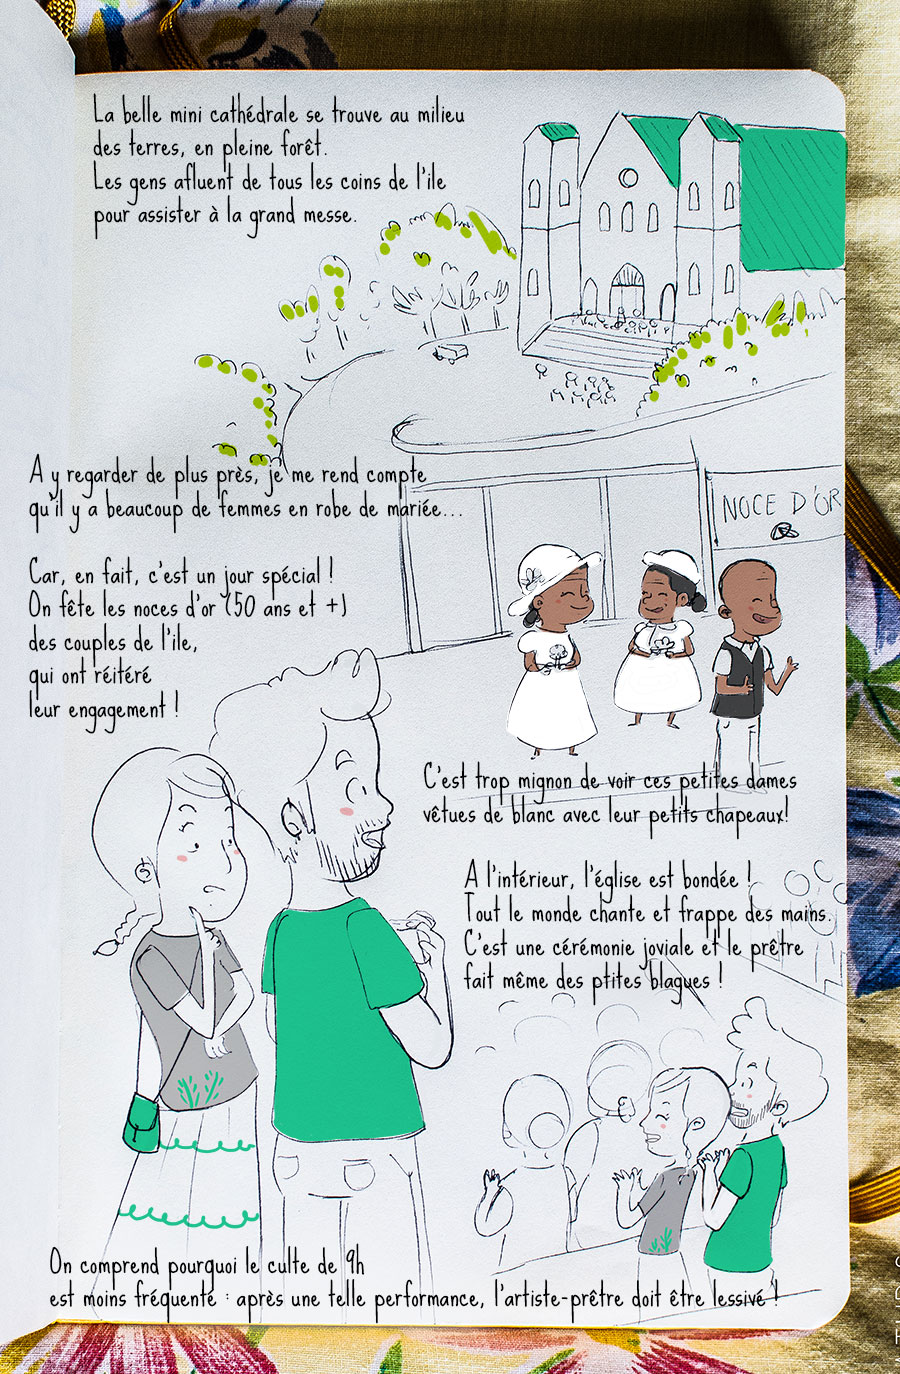 La belle mini cathédrale se trouve au milieu
des terres, en pleine forêt.
Les gens afluent de tous les coins de l'ile
pour assister à la grand messe.
A y regarder de plus près, je me rend compte
qu'il y a beaucoup de femmes en robe de mariée...
NOCE D'OR
Car, en fait, c'est un jour spécial !
On fête les noces d'or (50 ans et +)
des couples de l'ile,
qui ont réitéré
leur engagement !
C'est trop mignon de voir ces petites dames
vêtues de blanc avec leur petits chapeaux!
A l'intérieur, l'église est bondée !
Tout le monde chante et frappe des mains.
C'est une cérémonie joviale et le prêtre
fait même des ptites blagues !
On comprend pourquoi le culte de 9h
est moins fréquenté : après une telle performance, l'artiste-prêtre doit être lessivé !